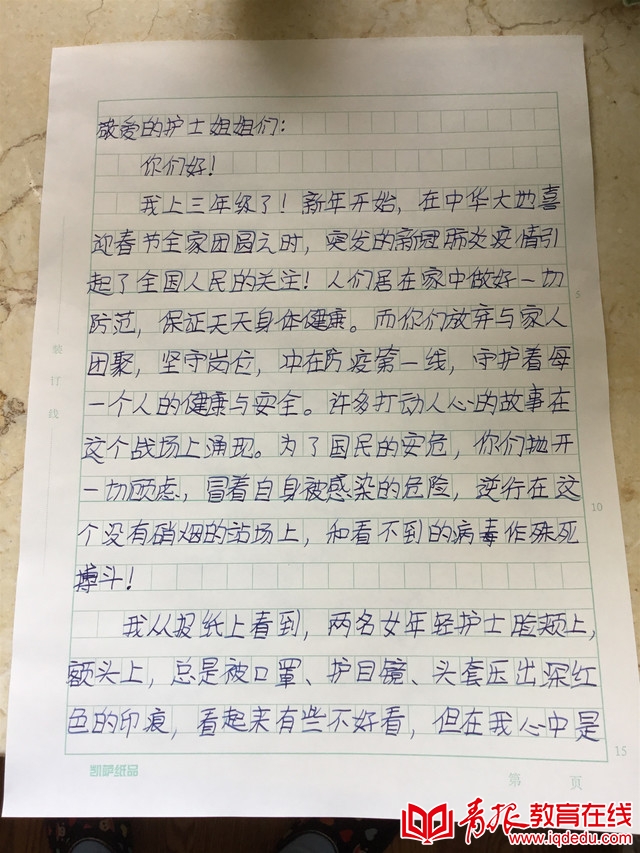 敬爱的护士姐姐们：
你们好！
我上三年级了！新年开始，在中华大地喜
迎春节全家团圆之时，突发的新冠肺炎疫情引
起了全国人民的关注！人们居在家中做好一切
防范，保证天天身体健康。而你们放弃与家人
团聚，坚守岗位，冲在防疫第一线，守护着每
一个人的健康与安全。许多打动人心的故事在
这个战场上涌现。为了国民的安危，你们抛开
一切顾虑，冒着自身被感染的危险，逆行在这
个没有硝烟的站场上，和看不到的病毒作殊死
搏斗！
我从报纸上看到，两名女年轻护士脸颊上，
额头上，总是被口罩、护目镜、头套压出深红
色的印痕，看起来有些不好看，但在我心中是
装订线
5
10
15
凯萨纸品
第 页
青报教育在线
www.iqdedu.com